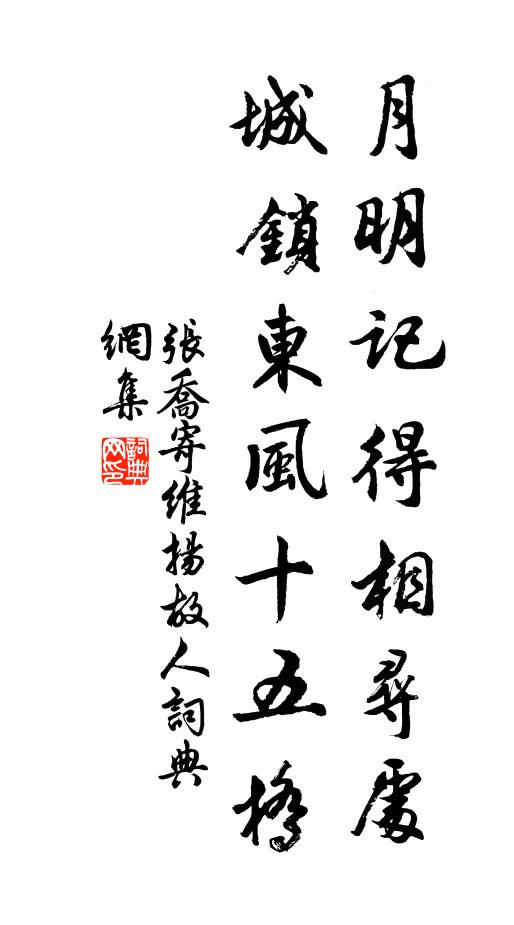 月明記得相尋處
城鎖東風十五橋
張喬寄維揚故人詞典
網集
詞典
网印